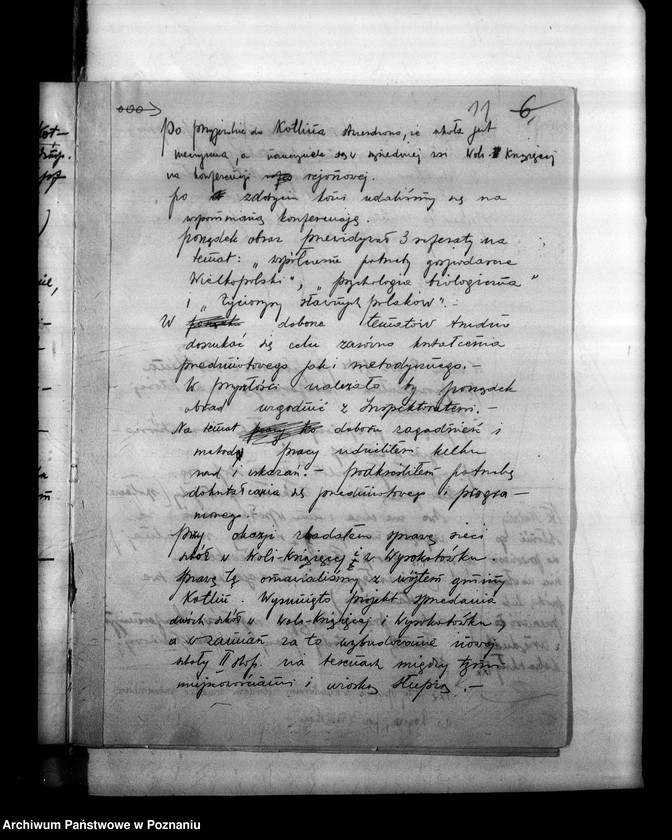 11 6
Po przyjeździe do Kotlina stwierdzono, iż szkoła jest
nieczynna, a nauczyciele są w sąsiedniej wsi Woli-Książęcej
na konferencji rejonowej.
Po zdobyciu koni udaliśmy się na
wspomnianą konferencję.
Porządek obrad przewidywał 3 referaty na
temat: „współczesne potrzeby gospodarcze
Wielkopolski", „psychologia biologiczna"
i „życiorysy sławnych polaków". –
W doborze tematów trudno
doszukać się celu zarówno kształcenia
przedmiotowego jak i metodycznego. –
W przyszłości należało by porządek
obrad uzgodnić z Inspektoratem. –
Na temat doboru zagadnień i
metody pracy udzieliłem kilku
rad i wskazań. – Podkreśliłem potrzebę
dokształcania się przedmiotowego i progra-
mowego.
Przy okazji zbadałem sprawę sieci
szkół w Woli-Książęcej i w Wysokotówku.
Sprawę tę omawialiśmy z wójtem gminy
Kotlin. Wysunięto projekt sprzedania
dwóch szkół w Woli-Książęcej i Wysokotówku,
a w zamian za to wybudowanie nowej
szkoły II stop. na terenach między tymi
miejscowościami i wioską Słupią. –
Archiwum Państwowe w Poznaniu